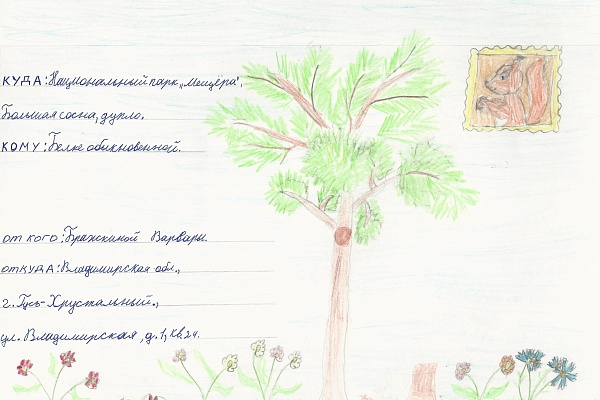 КУДА: Национальный парк „Мещёра".
Большая сосна, дупло.
КОМУ: Белке обыкновенной.
от кого: Бражкиной Варвары.
откуда: Владимирская обл.,
г. Гусь-Хрустальный.,
ул. Владимирская, д.1, кв.24.